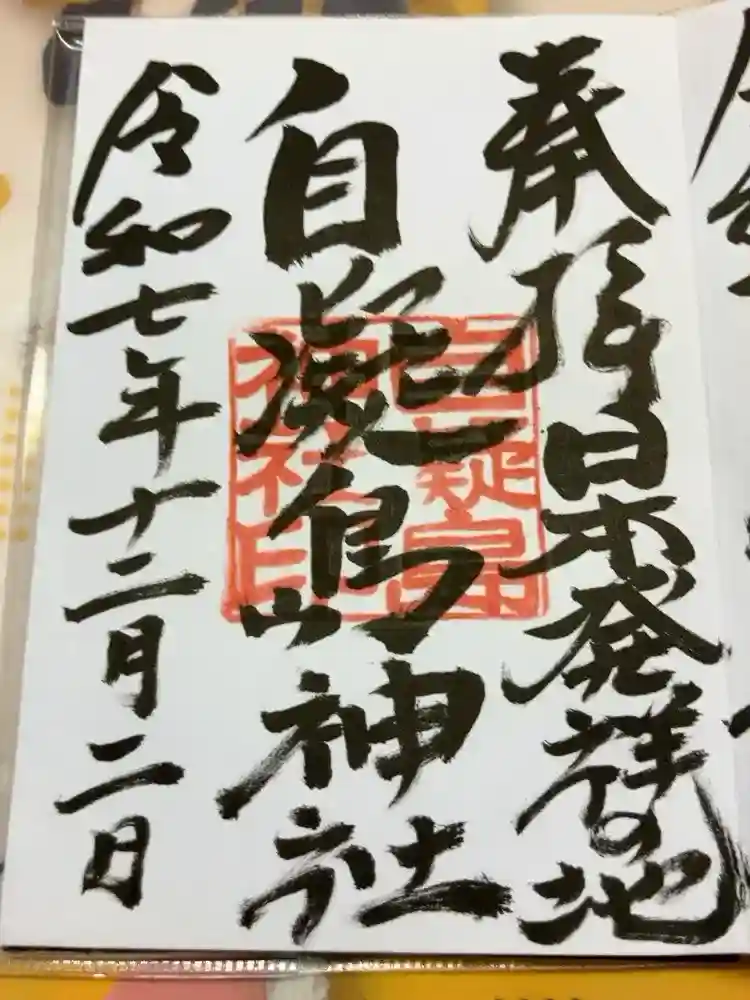 奉拝 日本発祥の地
自凝島神社
自凝島神社印
令和七年十二月二日